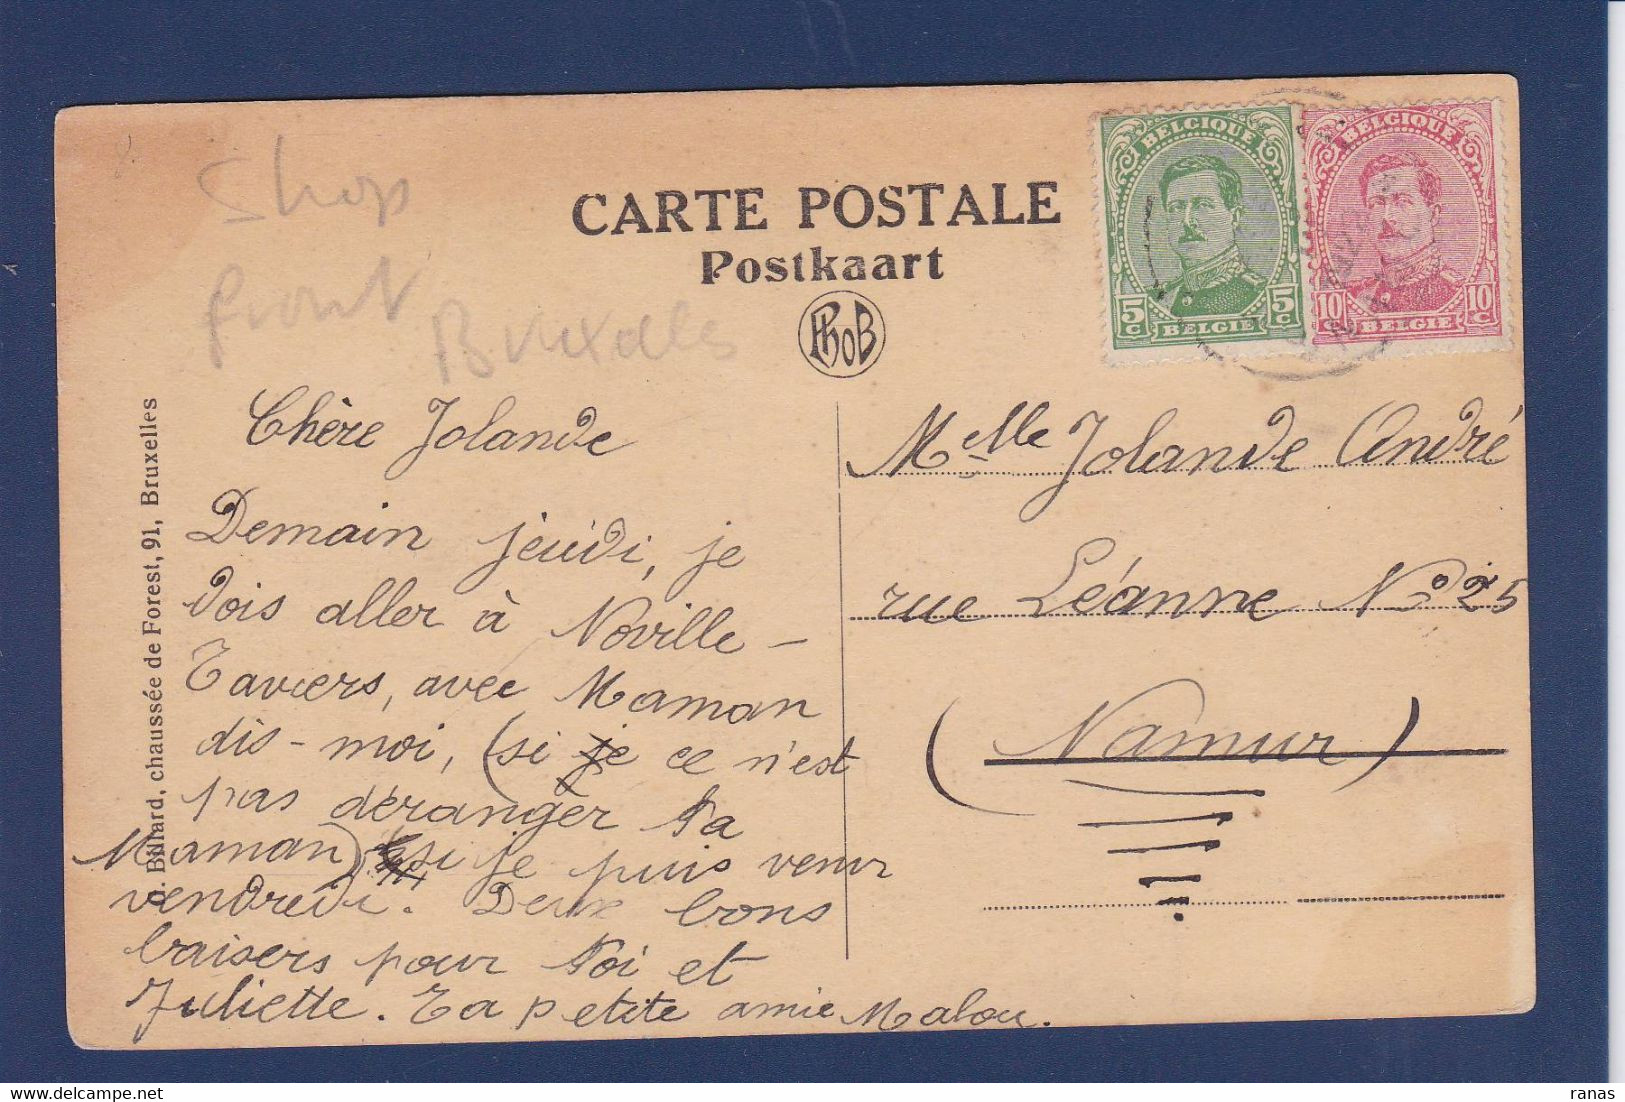 Shop
front Bruxelles
CARTE POSTALE
Postkaart
PhoB
BELGIQUE
5c 5c
BELGIE
BELGIQUE
10c 10c
BELGIE
D. Billard, chaussée de Forest, 91, Bruxelles
Chère Jolande
Demain jeudi, je
dois aller à Noville-
Taviers, avec Maman
dis-moi, (si je ce n'est
pas déranger ta
Maman) si je puis venir
vendredi. Deux bons
baisers pour toi et
Juliette. Ta petite amie Malou.
Melle Jolande André
rue Léanne No 25
(Namur)
www.delcampe.net
ranas